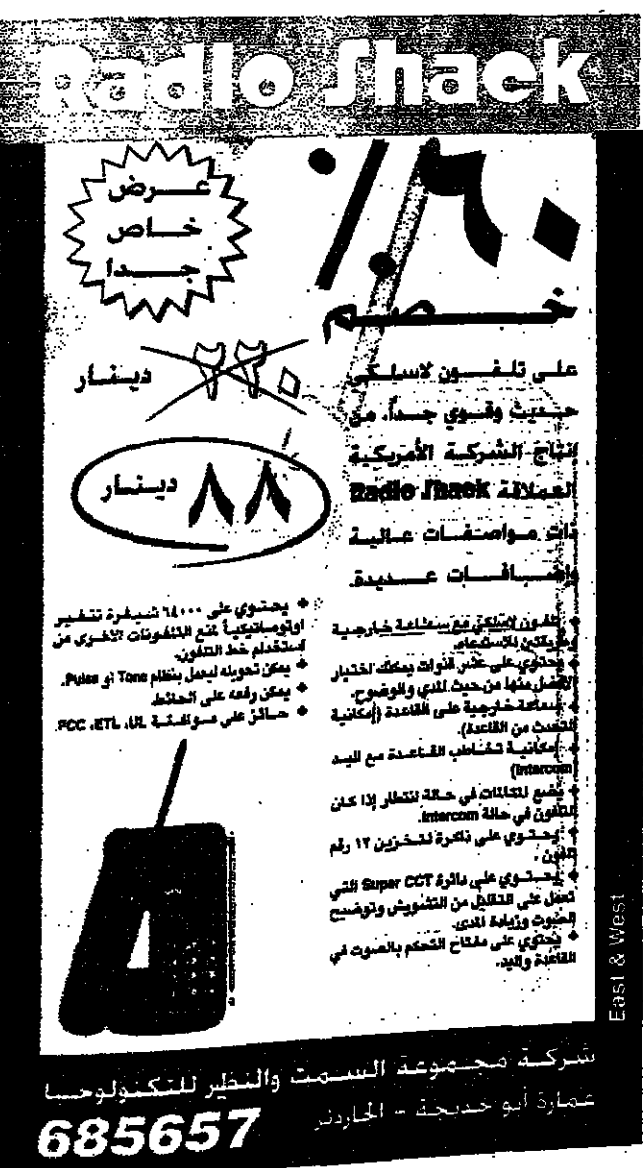 Radio Shack
٦٠٪
خصم
عرض
خاص
جدا
٢٢٠ دينار
٨٨ دينار
على تلفون لاسلكي
حديث وقوي جداً، من
إنتاج الشركة الأمريكية
العملاقة Radio Shack
ذات مواصفات عالية
وإضافات عديدة.
تلفون لاسلكي مع سماعة خارجية
وطريقتين للاستعمال.
يحتوي على عشر قنوات يمكنك اختيار
الأفضل منها من حيث المدى والوضوح.
سماعة خارجية على القاعدة (إمكانية
التحدث من القاعدة).
إمكانية تخاطب القاعدة مع اليد
(Intercom)
يضع المكالمات في حالة انتظار إذا كان
التلفون في حالة Intercom.
يحتوي على ذاكرة لتخزين ١٢ رقم
تلفون.
يحتوي على دائرة Super CCT التي
تعمل على التقليل من التشويش وتوضيح
الصوت وزيادة المدى.
يحتوي على مفتاح التحكم بالصوت في
القاعدة واليد.
يحتوي على ٦٤٠٠٠ شيفرة تتغير
اوتوماتيكياً لمنع التلفونات الأخرى من
استخدام خط التلفون.
يمكن تحويله ليعمل بنظام Tone أو Pulse.
يمكن رفعه على الحائط.
حائز على موافقة FCC ،ETL ،UL.
East & West
شركة مجموعة السمت والنظير للتكنولوجيا
عمارة أبو خديجة - الجاردنز
685657